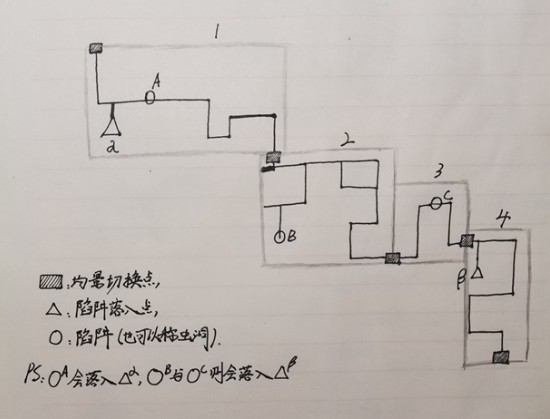 1
A
α
2
3
C
B
4
β
▨:均景切换点,
△:陷阱落入点,
○:陷阱(也可以称虫洞).
PS:○A会落入△α,○B与○C则会落入△β